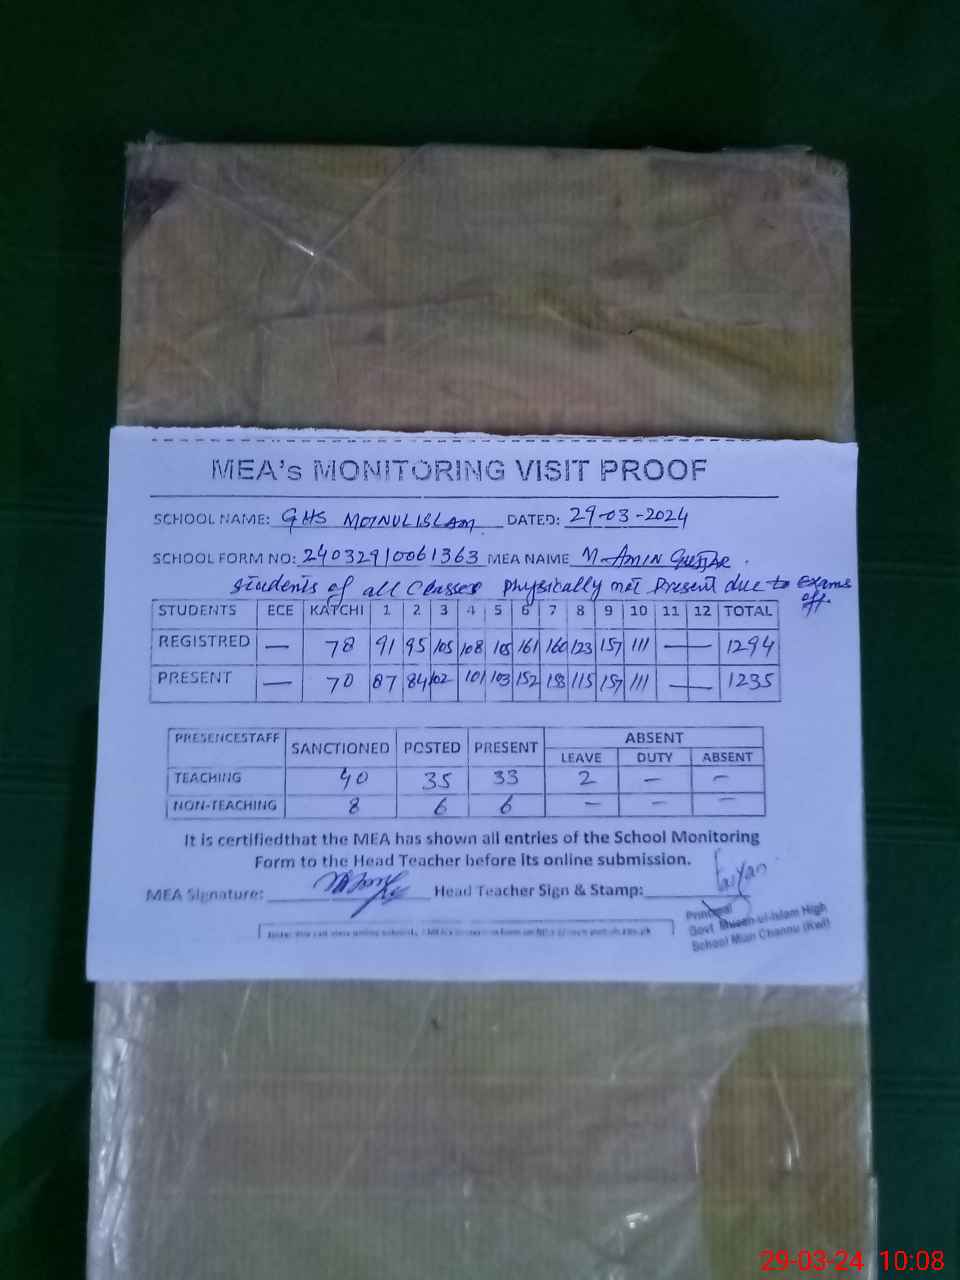 MEA's MONITORING VISIT PROOF
SCHOOL NAME: GHS MOINULISLAM DATED: 29-03-2024
SCHOOL FORM NO: 24032910061363 MEA NAME M. AMIN
Students of all Classes Physically not Present due to Exams
off
STUDENTS ECE KATCHI 1 2 3 4 5 6 7 8 9 10 11 12 TOTAL
REGISTRED — 78 91 95 105 108 105 161 160 123 157 111 — 1294
PRESENT — 70 87 84 102 101 103 152 153 115 157 111 — 1235
PRESENCESTAFF SANCTIONED POSTED PRESENT ABSENT
LEAVE DUTY ABSENT
TEACHING 40 35 33 2 — —
NON-TEACHING 8 6 6 — — —
It is certifiedthat the MEA has shown all entries of the School Monitoring
Form to the Head Teacher before its online submission.
MEA Signature: Head Teacher Sign & Stamp:
Principal
Govt Mueen-ul-Islam High
School Mian Channu (Kwl)
29-03-24 10:08